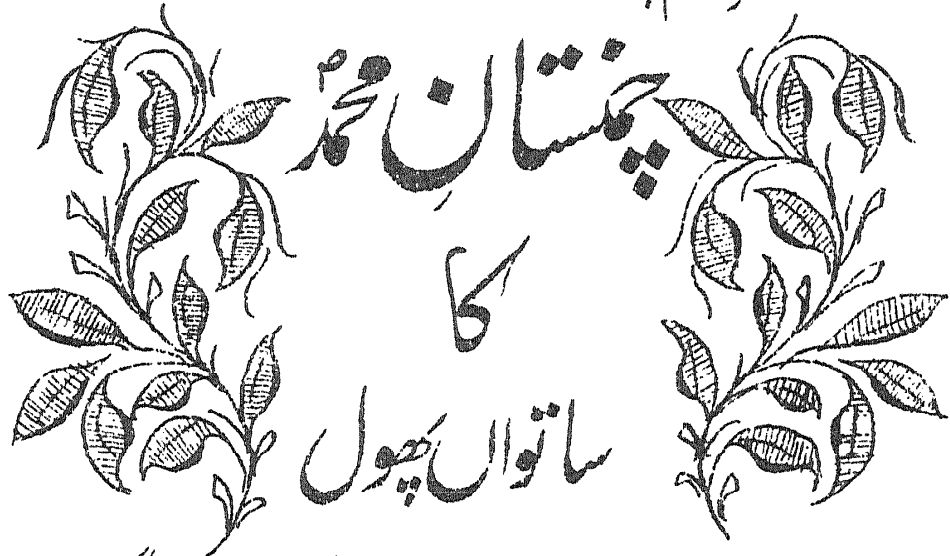 چمنستانِ محمدؐ
کا
ساتواں پھول